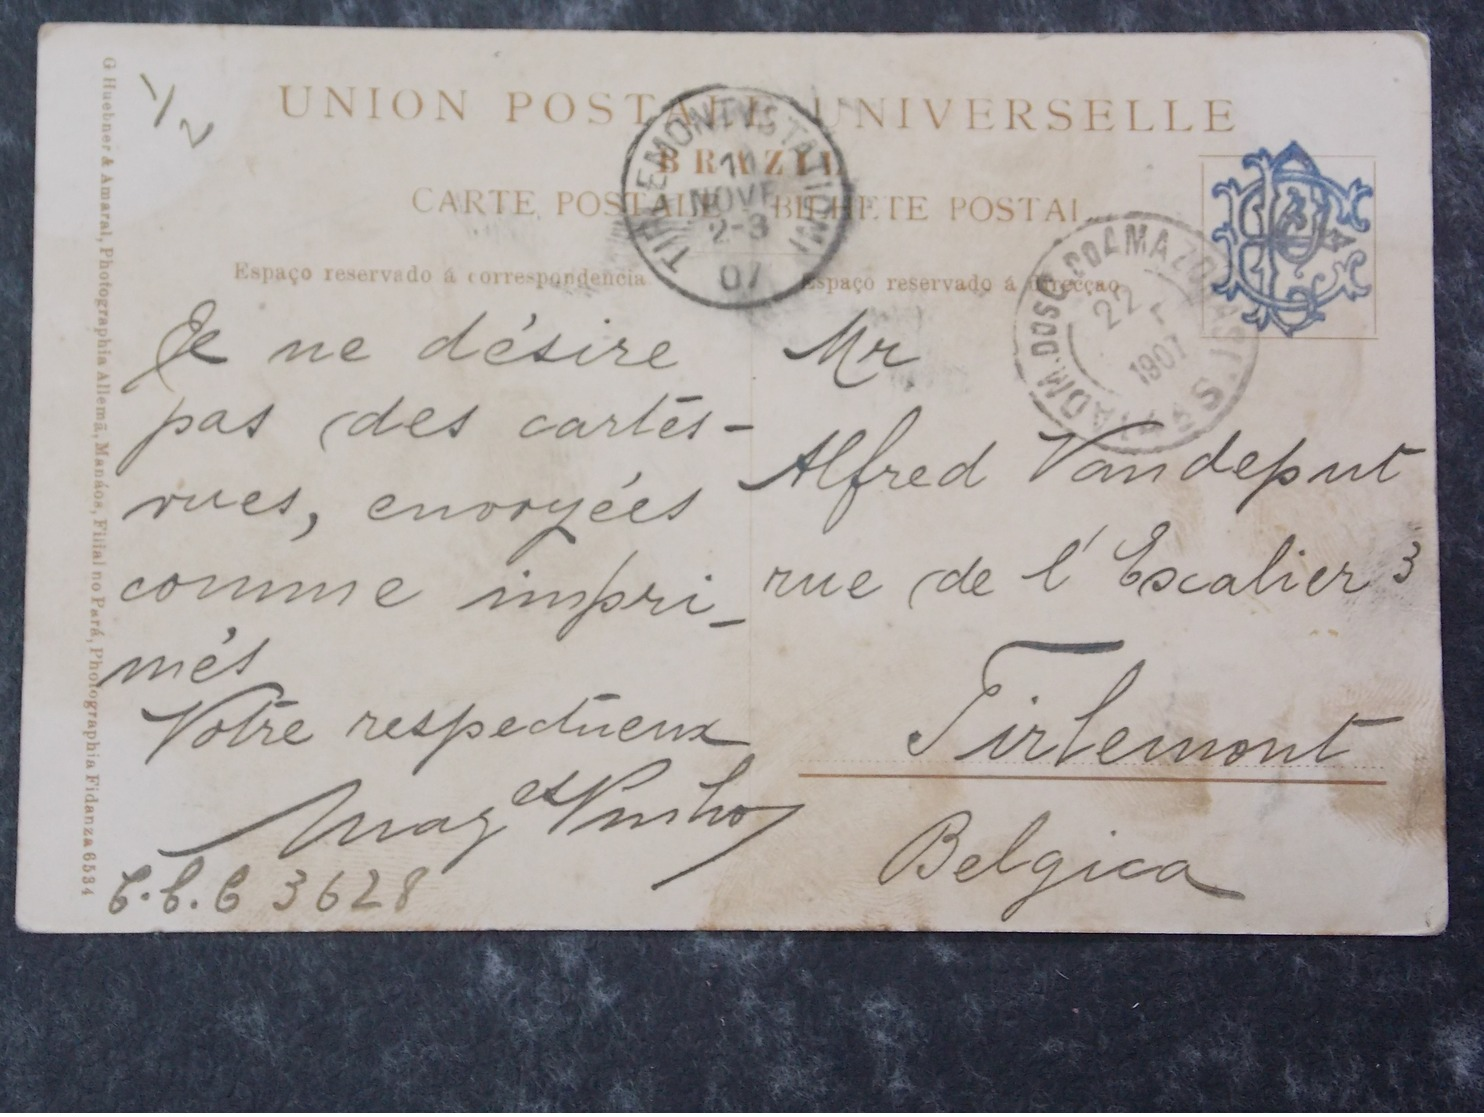 1/2
UNION POSTALE UNIVERSELLE
BRAZIL
CARTE POSTALE BILHETE POSTAL
Espaço reservado á correspondencia
Espaço reservado á direcção
TIRLEMONT (STATION)
11
NOVE
2-3
07
ADM. DOS C. DO AMAZONAS
22
1907
Je ne désire
pas des cartes-
vues, envoyées
comme impri-
més
Votre respectueux
Pinho
C.C.C 3628
Mr
Alfred Vandeput
rue de l'Escalier 3
Tirlemont
Belgica
G Huebner & Amaral, Photographia Allemã, Manáos, Filial no Pará, Photographia Fidanza 6534